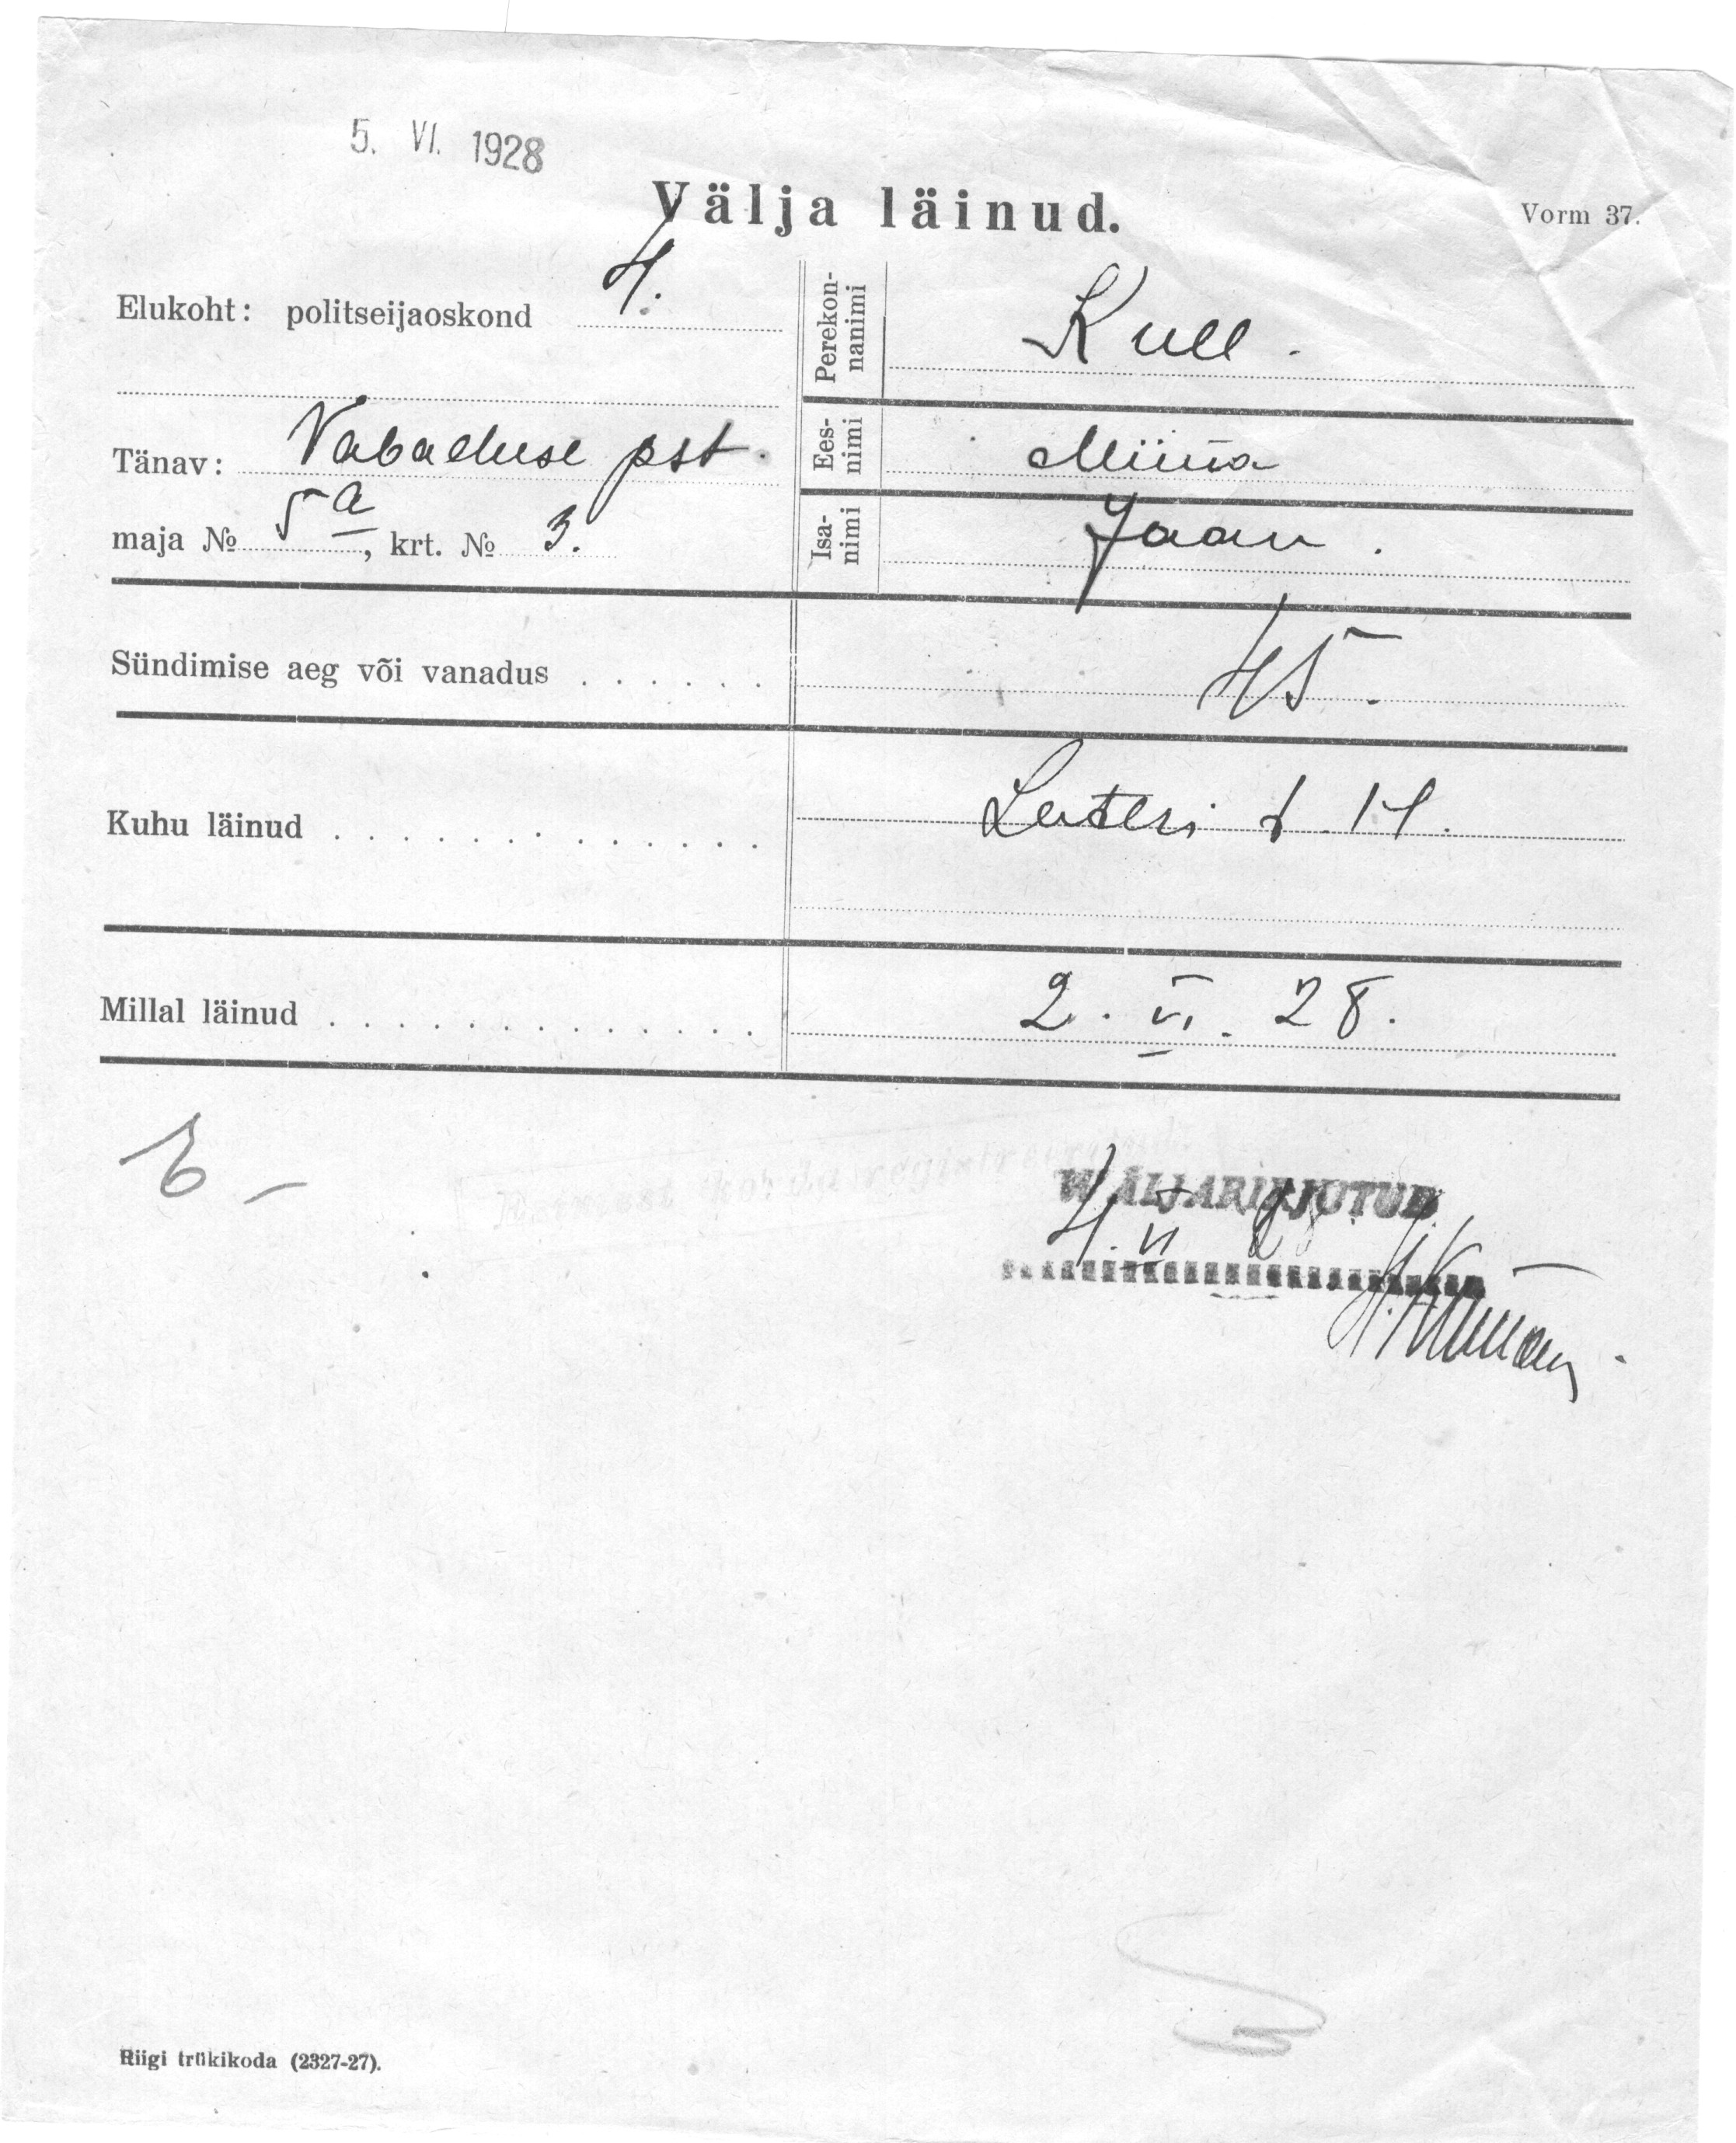 5. VI. 1928
Välja läinud.
Vorm 37.
Elukoht: politseijaoskond 4.
Tänav: Vabaduse pst.
maja № 5a, krt. № 3.
Perekon-
nanimi
Kull.
Ees-
nimi
Miina
Isa-
nimi
Jaan.
Sündimise aeg või vanadus . . . . . . 45.
Kuhu läinud . . . . . . . . . . . . . Luteri t. 14.
Millal läinud . . . . . . . . . . . . . 2. VI. 28.
WÄLJAKIRJUTUD
4. VI 28.
Riigi trükikoda (2327-27).